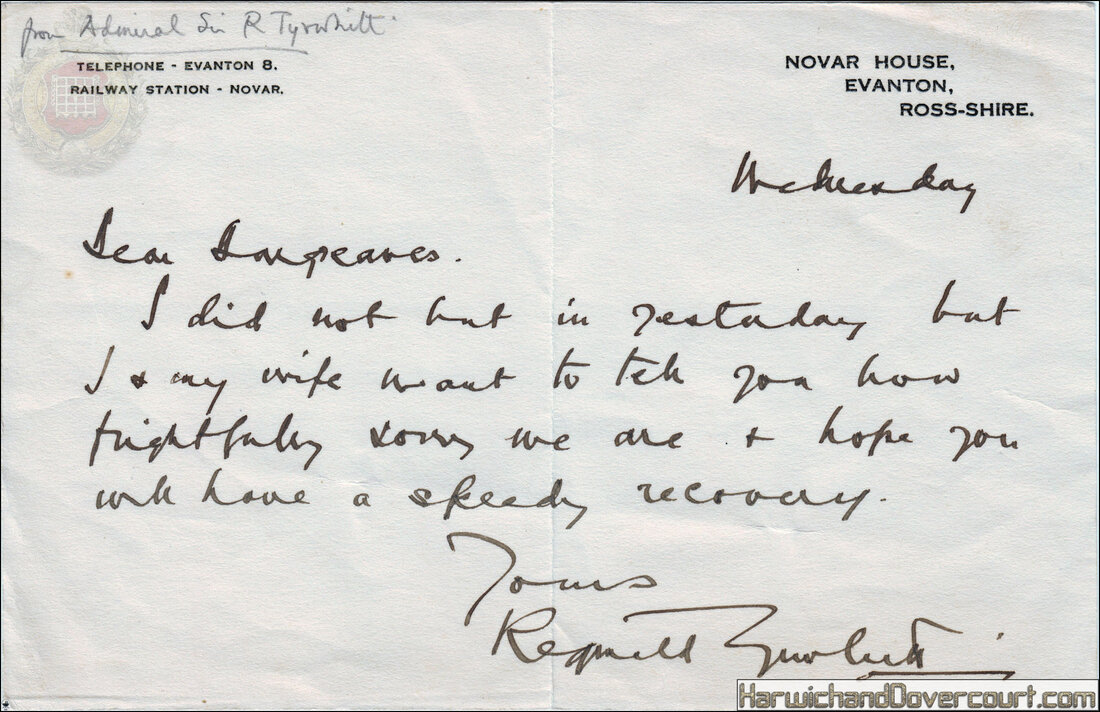 from Admiral Sir R Tyrwhitt
TELEPHONE - EVANTON 8.
RAILWAY STATION - NOVAR.
NOVAR HOUSE,
EVANTON,
ROSS-SHIRE.
Wednesday
Dear Hargreaves.
I did not but in yestaday but
I & my wife want to tell you how
frightfully sorry we are & hope you
will have a speedy recovery.
Yours
Reginald Tyrwhitt
HarwichandDovercourt.com